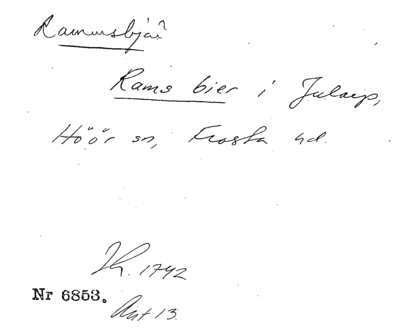 Rammsbjär
Rams bier i Jularp,
Höör sn, Frosta hd.
Jk. 1742
Nr 6853.
Ant 13.